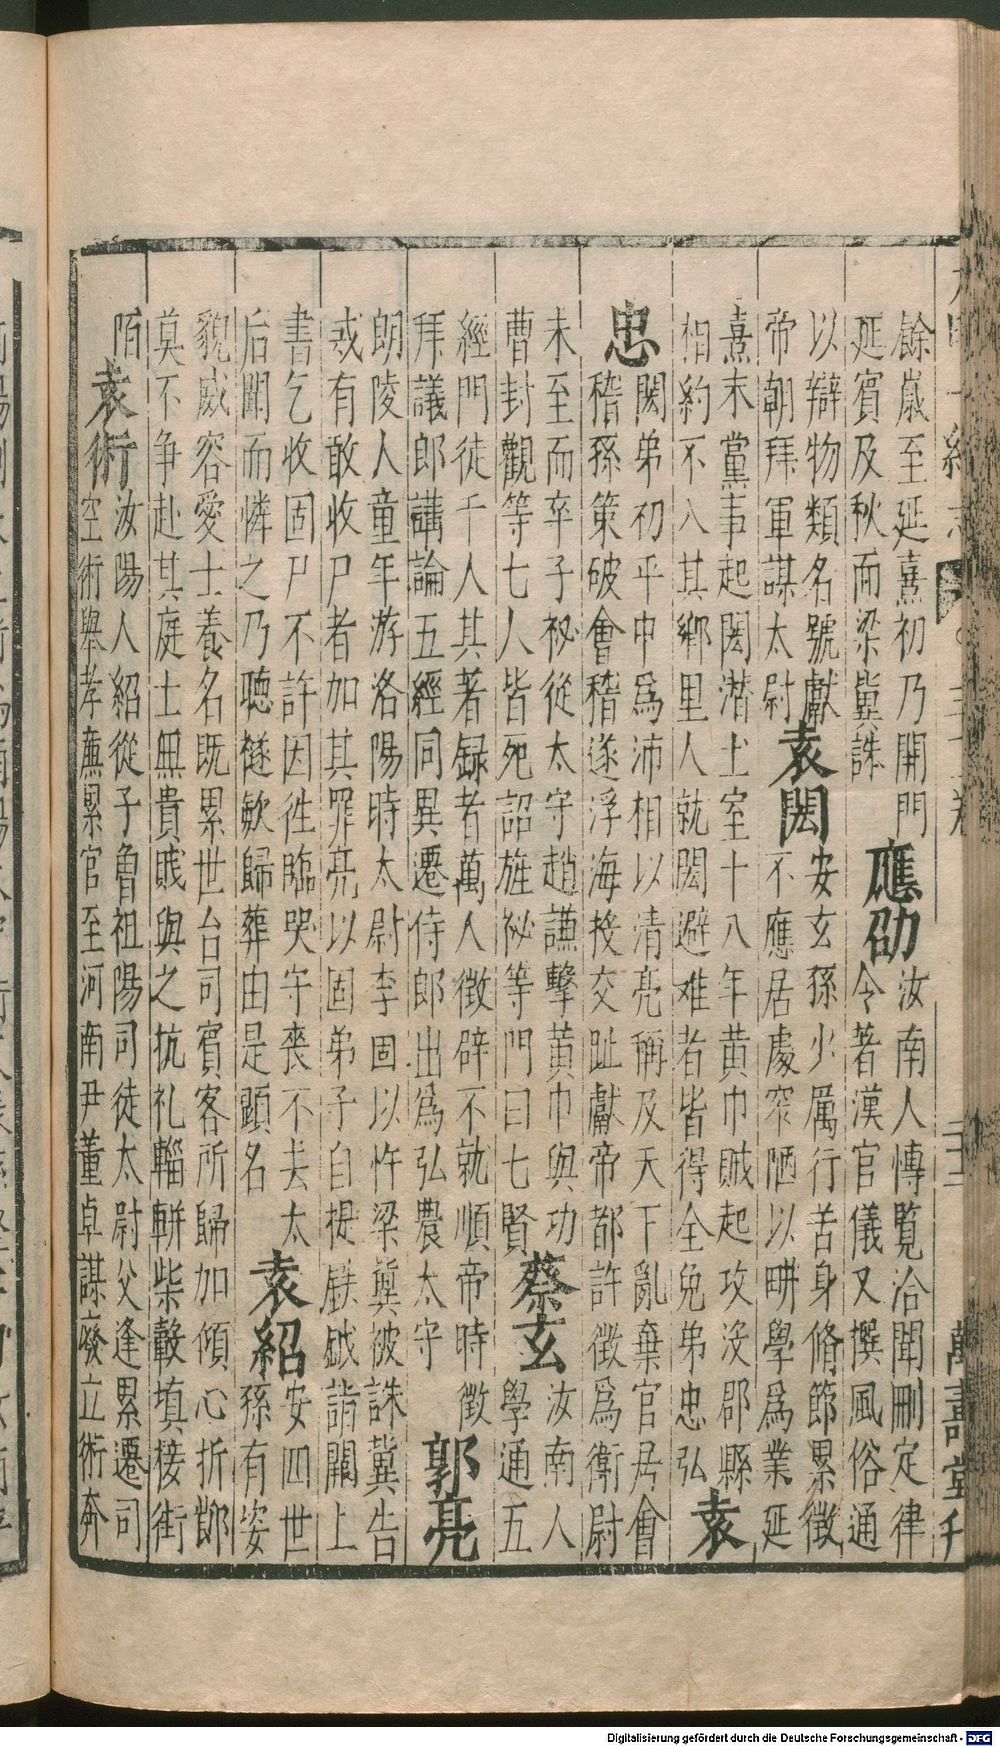 餘歲至延熹初乃開門
延賓及秋而梁冀誅
應劭
汝南人博覧洽聞刪定律
令著漢官儀又撰風俗通
以辯物類名號獻
帝朝拜軍謀太尉
袁閎
安玄孫少厲行苦身脩節累徵
不應居處窄陋以畊學爲業延
熹末黨事起閎潜土室十八年黄巾賊起攻沒郡縣
相約不入其鄉里人就閎避难者皆得全免弟忠弘
袁
忠
閎弟初平中爲沛相以清亮稱及天下亂棄官居會
稽孫策破會稽遂浮海投交趾獻帝都許徵爲衛尉
未至而卒子祕從太守趙謙擊黄巾與功
曹封觀等七人皆死詔旌祕等門曰七賢
蔡玄
汝南人
學通五
經門徒千人其著録者萬人徵辟不就順帝時徵
拜議郎講論五經同異遷侍郎出爲弘農太守
郭亮
朗陵人童年游洛陽時太尉李固以忤梁冀被誅冀告
或有敢收尸者加其罪亮以固弟子自提鈇鉞詣闕上
書乞收固尸不許因徃臨哭守喪不去太
后聞而憐之乃聽襚歛歸葬由是顕名
袁紹
安四世
孫有姿
貌威容愛士養名既累世台司賓客所歸加傾心折節
莫不争赴其庭士無貴賤與之抗礼輜軿柴轂填接街
陌
袁術
汝陽人紹從子魯祖陽司徒太尉父逢累遷司
空術舉孝廉累官至河南尹董卓謀廢立術奔
萬壽堂刊
Digitalisierung gefördert durch die Deutsche Forschungsgemeinschaft - DFG